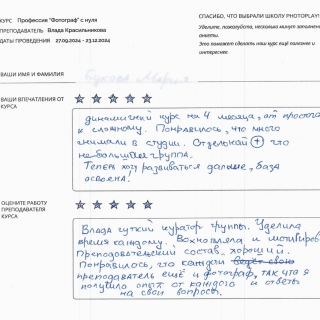 КУРС Профессия "Фотограф" с нуля
ПРЕПОДАВАТЕЛЬ Влада Красильникова
ДАТЫ ПРОВЕДЕНИЯ 27.09.2024 - 23.12.2024
СПАСИБО, ЧТО ВЫБРАЛИ ШКОЛУ PHOTOPLAY!
Уделите, пожалуйста, несколько минут заполнению
анкеты.
Это поможет сделать наш курс ещё полезнее и
интереснее.
ВАШИ ИМЯ И ФАМИЛИЯ
Букова Мария
ВАШИ ВПЕЧАТЛЕНИЯ ОТ
КУРСА
динамичный курс на 4 месяца, от простого
к сложному. Понравилось, что много
снимали в студии. Отдельный + что
небольшая группа.
Теперь хочу развиваться дальше, база
освоена!
ОЦЕНИТЕ РАБОТУ
ПРЕПОДАВАТЕЛЯ
КУРСА
Влада чуткий куратор группы. Уделила
время каждому. Вохновляла и мотивиров
Преподавательский состав хороший.
Понравилось, что каждый ведёт свою
преподаватель ещё и фотограф, так что я
получила опыт от каждого и ответы
на свои вопросы.